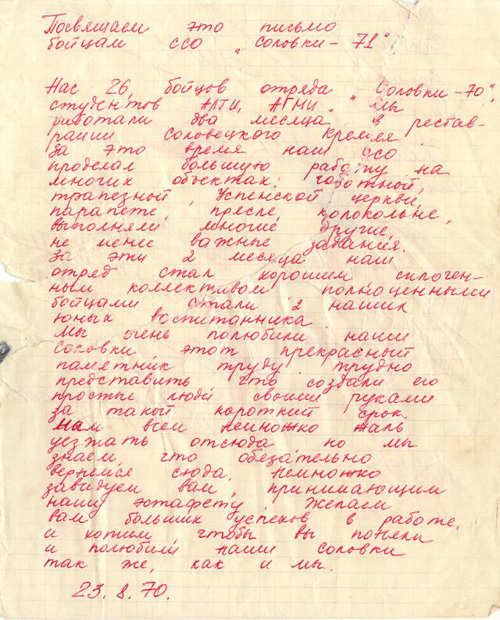 Посвящаем это письмо
бойцам ССО „Соловки-71".
Нас 26, бойцов отряда „Соловки-70",
студентов АЛТИ, АГМИ. Мы
работали два месяца в рестав-
рации Соловецкого Кремля.
За это время наш ССО
проделал большую работу на
многих объектах:
трапезной, Успенской церкви,
парапете, прясле, колокольне,
выполняли многие другие,
не менее важные задания.
За эти 2 месяца наш
отряд стал хорошим сплочен-
ным коллективом, полноценными
бойцами стали 2 наших
юных воспитанника.
Мы очень полюбили наши
Соловки этот прекрасный
памятник труду. Трудно
представить что создали его
простые люди своими руками
за такой короткий срок.
Нам всем немножко жаль
уезжать отсюда но мы
знаем, что обязательно
вернемся сюда. Немножко
завидуем вам, принимающим
нашу эстафету. Желаем
вам больших успехов в работе,
и хотим, чтобы вы поняли
и полюбили наши Соловки
так же, как и мы.
23.8.70.